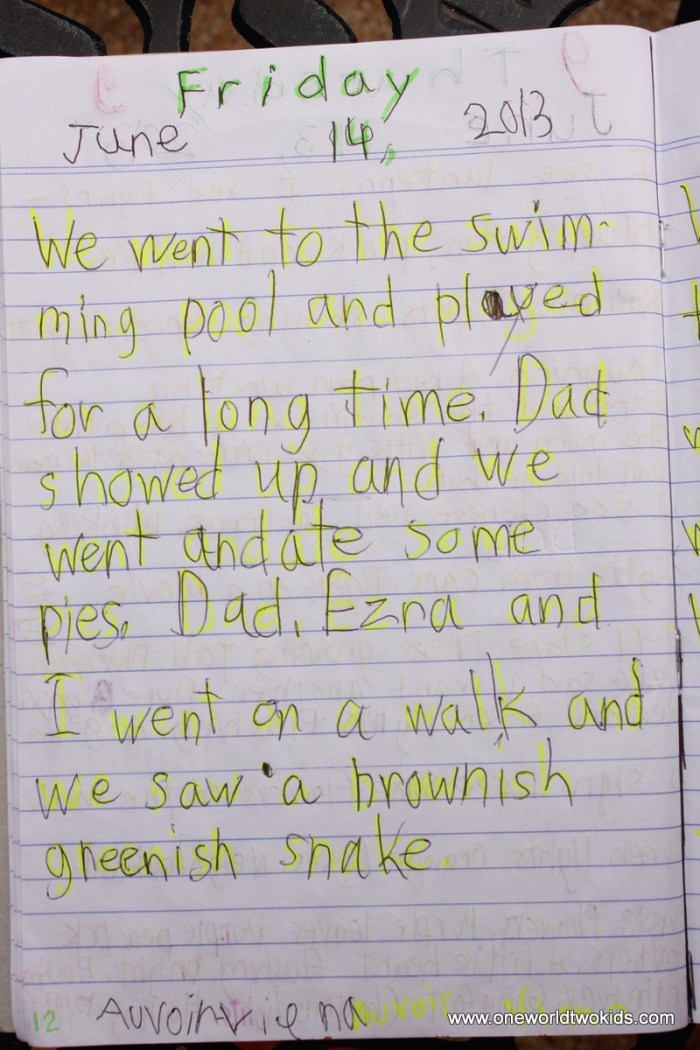 Friday
June 14, 2013
We went to the swim-
ming pool and played
for a long time. Dad
showed up and we
went and ate some
pies. Dad, Ezra and
I went on a walk and
we saw a brownish
greenish snake.
12
www.oneworldtwokids.com